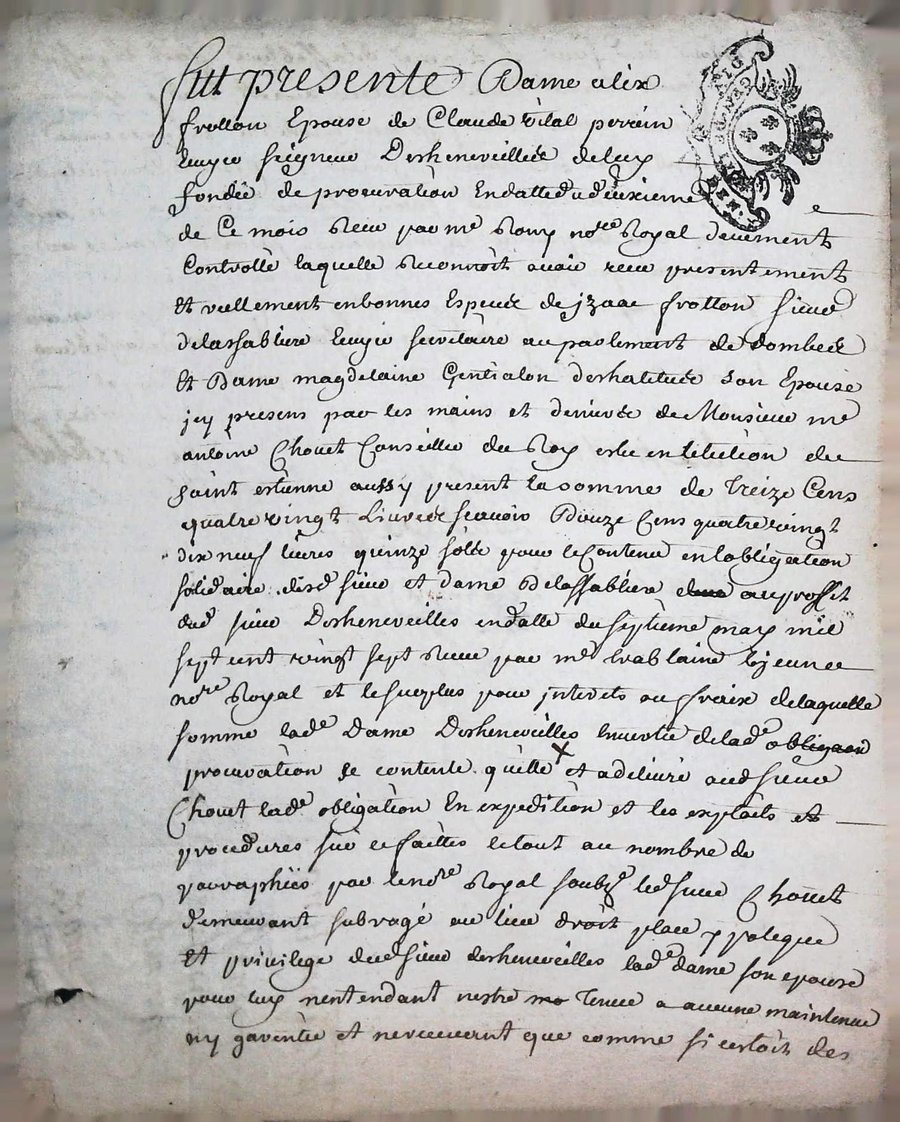 fut presente Dame alix
frotton Epouse de Claude vital perrein
Ecuyer seigneur Desheneveilles deluy
fondée de procuration Endatte du deuxieme
de Ce mois Receu par me Rony nore Royal deuement
Controllé laquelle Reconnoit avoir receu presentement
Et reellement enbonnes Especes de jzaac frotton sieur
delassabliere Ecuyer secrétaire au parlement de dombes
Et Dame magdelaine Gentialon deshatitudes son Epouse
jcy presens par les mains et deniers de Monsieur me
antoine Chouet Conseiller du Roy eslu en lelection de
saint estienne aussy present la somme de treize Cens
quatrevingt Livres scavoir Douze Cens quatre vingt
dix neuf livres quinze sols pour le Contenu en lobligation
solidaire desd sieur et dame Delassabliere au proffit
dud sieur Desheneveilles endatte du septieme may mil
sept cent vingt sept Receu par me lejeune
nore Royal et le surplus pour jnterets ou fraix delaquelle
somme lade Dame Desheneveilles envertu de lade obligaon
procuration se contente quitte et a delivré aud sieur
Chouet lade obligation En expedition et les exploits et
procedures sur ce faittes letout au nombre de
parraphées par lenore Royal soubzé led sieur Chouet
demeurant subrogé au lieu droit place ypoteque
Et privilege dud sieur desheneveilles lade dame son epouse
pour luy nentendant nestre tenue a aucune maintenue
ny garentie et nerecevant que comme si cestoit des